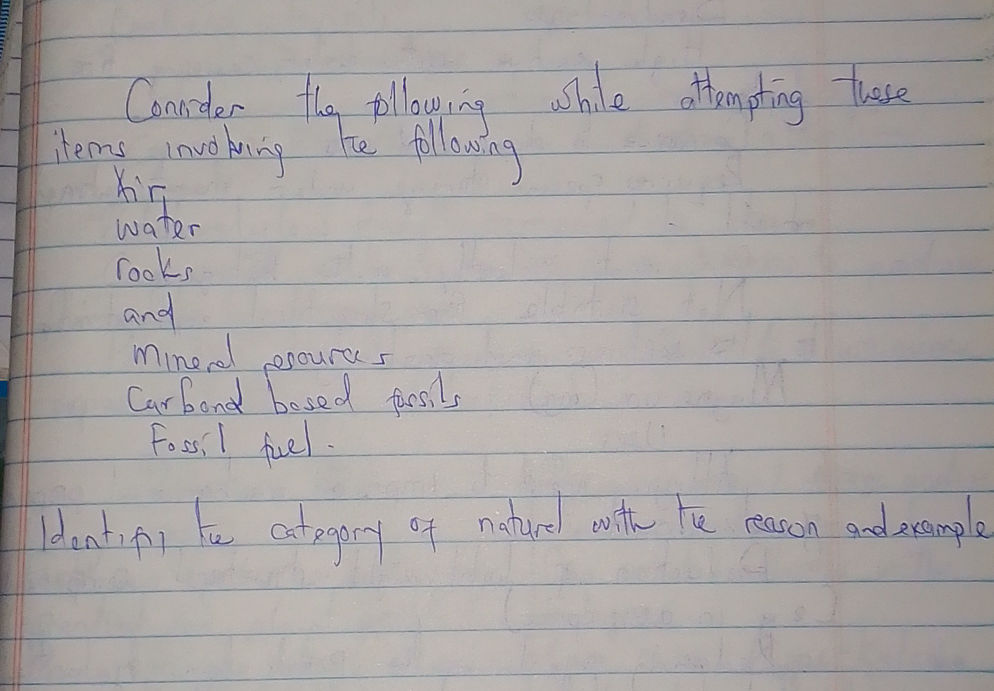 Consider the following while attempting these
items involving the following
Air
water
rocks
and
mineral resources
Carbond based fossils
Fossil fuel.
Identify the category of naturel with the reason and example